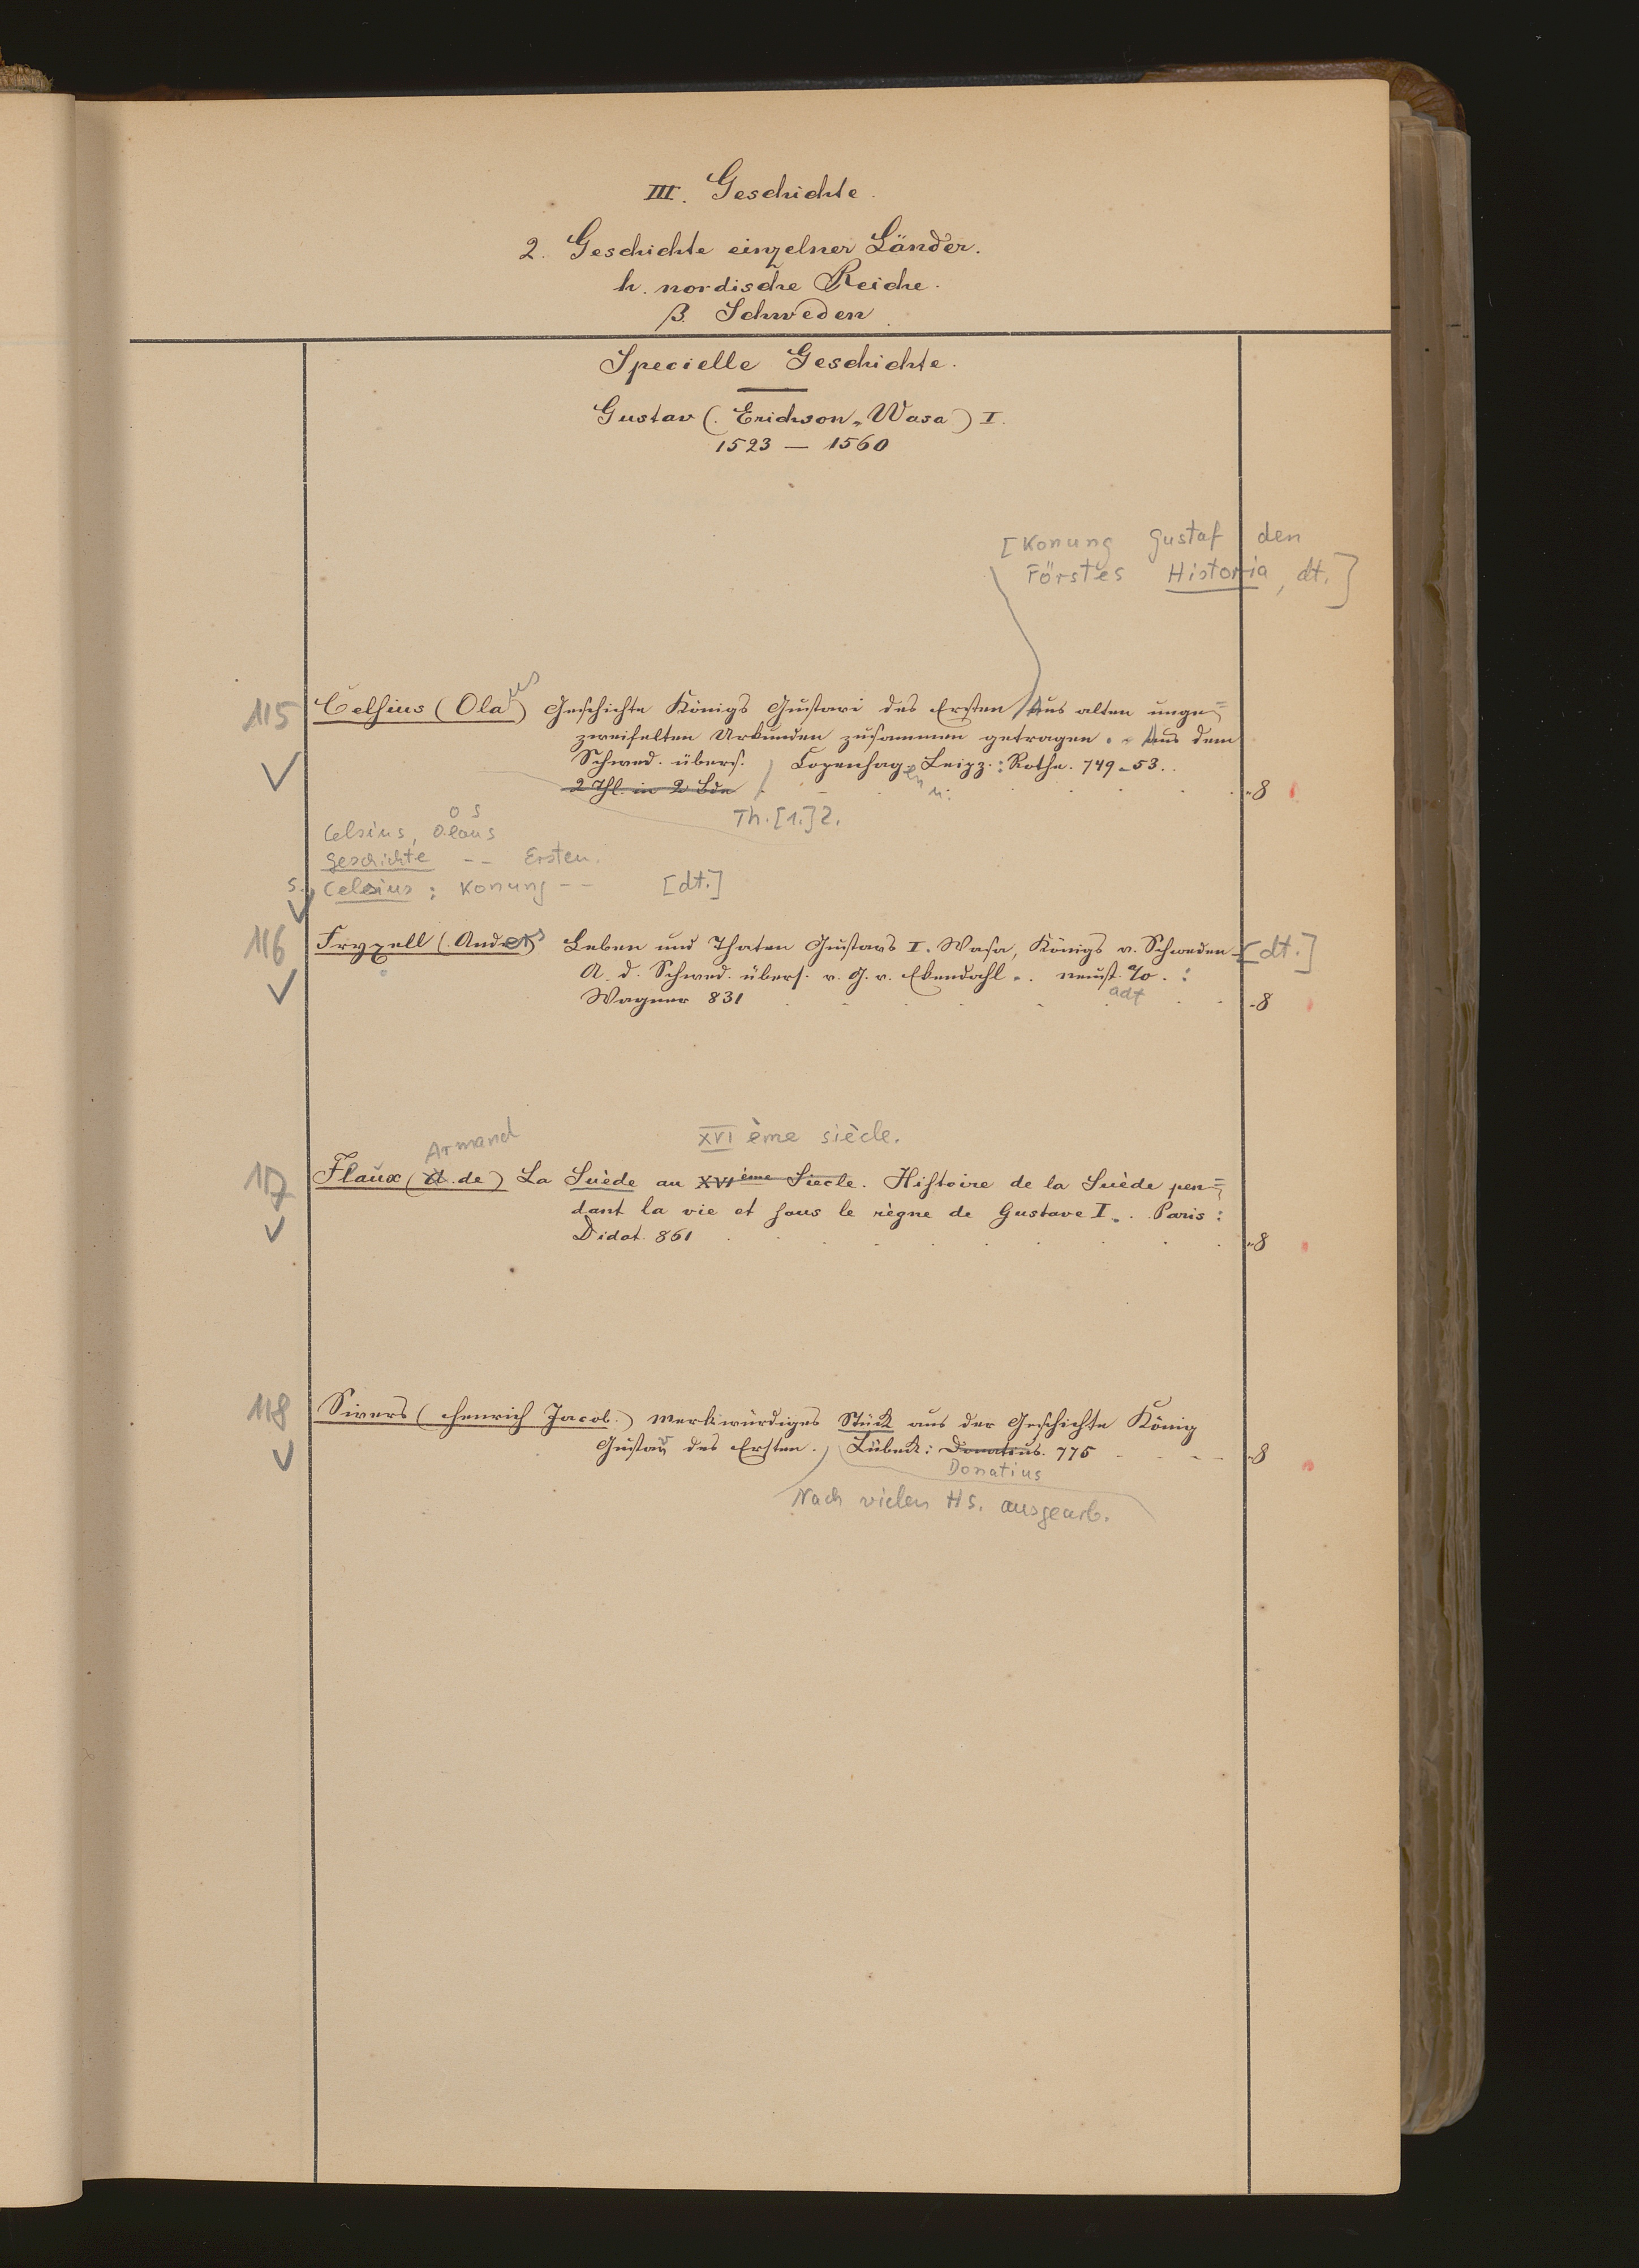 III. Geschichte.
2. Geschichte einzelner Länder.
h. nordische Reiche.
β. Schweden
Specielle Geschichte.
Gustav (Erichson-Wasa) I.
1523 — 1560
[Konung Gustaf den
Förstes Historia, dt.]
115 Celsius (Olaus) Geschichte Königs Gustavi des Ersten Aus alten unge=
zweifelten Urkunden zusammen getragen . . Aus dem
Schwed. übers. Copenhagen u. Leipz.: Rothe. 749-53.
2 Thl. in 2 Bde - 8
Th. [1.] 2.
o s
Celsius, Olaus
Geschichte -- Ersten.
s. Celsius: Konung -- [dt.]
116 Fryxell (Anders) Leben und Thaten Gustavs I. Wasa, Königs v. Schweden [dt.]
A. d. Schwed. übers. v. G. v. Ekendahl . . Neust. a/O. :
adt
Wagner 831 - 8
Armand XVI ème siècle.
117 Flaux (A. de) La Suède au XVIème Siècle. Histoire de la Suède pen=
dant la vie et sous le règne de Gustave I. . Paris :
Didot. 861 - 8
118 Sivers (Henrich Jacob.) Merkwürdiges Stück aus der Geschichte König
Gustav des Ersten. Lübeck: Donatius. 775 - 8
Donatius
Nach vielen Hs. ausgearb.